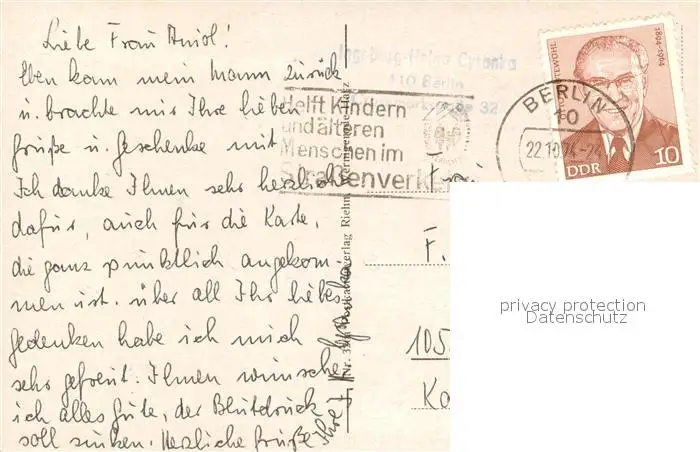 Liebe Frau
Eben kam mein Mann zurück
u. brachte mir Ihre lieben
Grüße u. Geschenke mit.
Ich danke Ihnen sehr herzlich
dafür, auch für die Karte,
die ganz pünktlich angekom-
men ist. über all Ihr liebes
Gedenken habe ich mich
sehr gefreut. Ihnen wünsche
ich alles Gute, der Blutdruck
soll sinken. Herzliche Grüße
Ihre
Cyranka
110 Berlin
32
Helft Kindern
und älteren
Menschen im
Straßenverke
BERLIN
22.10.74-24
1894-1964
DDR
10
Frau
F.
105
privacy protection
Datenschutz